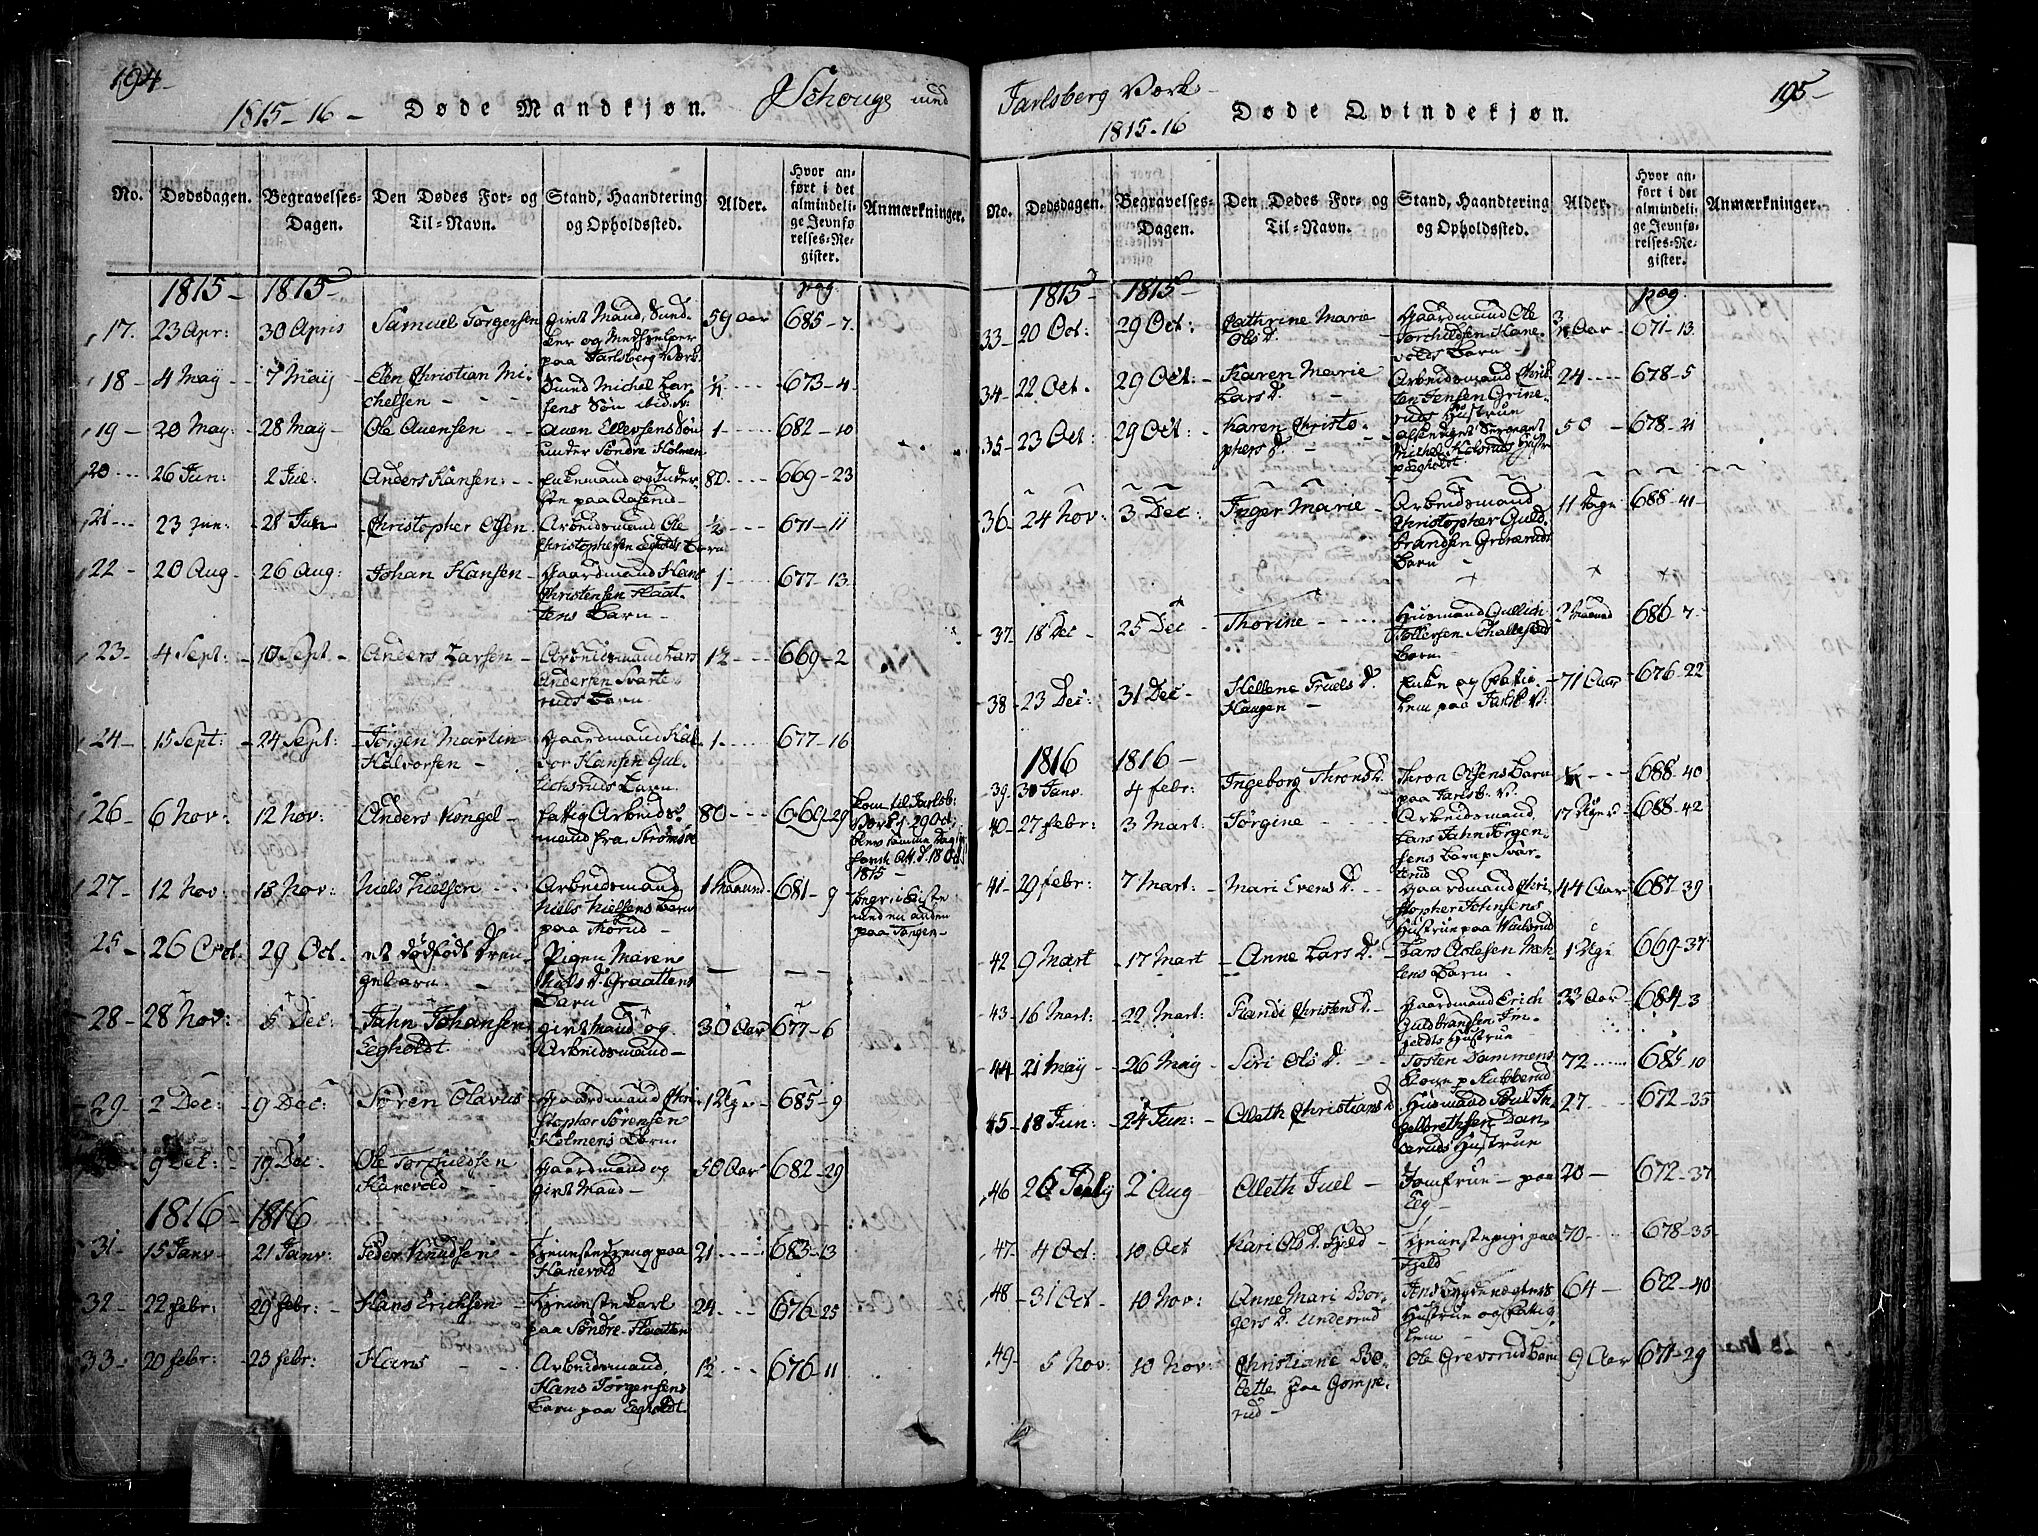 194
1815-16 Døde Mandkjøn. Schouge med
No. Dødsdagen. Begravelses-Dagen. Den Dødes For- og Til-Navn. Stand, Haandtering og Opholdssted. Alder. Hvor anført i det almindelige Jevnførelses-Register. Anmærkninger.
1815 1815 pag
17. 23 Apr: 30 Apris Samuel Torgersen 59 Aar 685-7
paa Jarlsberg Værk
18 4 May 7 May Christian Michelsen 673-4
Michel Larsens Søn ibid:
19 20 May: 28 May Ole Auensen 1 682-10
Auen Ellefsens Søn
under Søndre Holmen
20 26 Jun: 2 Jul: Anders Hansen 80 669-23
21 23 Jun: 28 Jun Christopher Olsen ½ 671-11
Arbeidsmand Ole
Christophersen Egholdts Barn
22 20 Aug 26 Aug: Johan Hansen 1 677-13
Gaardmand Hans
Christensen Flaattens Barn
23 4 Sept: 10 Sept Anders Larsen 1½ 669-2
Arbeidsmand Lars
Andersen Svarteruds Barn
24 15 Sept: 24 Sept: Jørgen Martin Halvorsen 1 677-16
Gaardmand Halvor Hansen Gullichsruds Barn
26 6 Nov: 12 Nov: Anders Kongel 80 669-29
fattig Arbeidsmand fra Strømsøe
Kom til Jarlsb:
Værk d. 29 Oct:
blev samme Dag
1815
27 12 Nov: 18 Nov: Niels Nielsen 1 Maaned 681-9
Arbeidsmand
Niels Nielsens Barn
paa Thorud
25 26 Oct. 29 Oct. et dødfødt Drengebarn
Pigen Maren
Niels D. Graattens
Barn
28 28 Nov: 5 Dec: Jahn Johansen Eegholdt 30 Aar 677-6
gift Mand og
Arbeidsmand
29 2 Dec: 9 Dec: Søren Olavus 1 Uge 685-9
Gaardmand Christopher Sørensen
Holmens Barn
9 Dec: 19 Dec. Ole Torchildsen Hanevold 50 Aar 682-29
Gaardmand og
gift Mand
1816 1816
31 15 Janv 21 Janv: Peder Knudsen 21 683-13
Tjenistedreng paa
Hanevold
32 22 febr: 29 febr: Hans Ericksen 24 676-25
Tjenistekarl
paa Søndre Flaatten
33 20 febr: 23 febr: Hans 1½ 676-11
Arbeidsmand
Hans Jørgensens
Barn paa Egholdt
Jarlsberg Værk 195
1815-16 Døde Qvindekjøn.
No. Dødsdagen. Begravelses-Dagen. Den Dødes For- og Til-Navn. Stand, Haandtering og Opholdssted. Alder. Hvor anført i det almindelige Jevnførelses-Register. Anmærkninger.
1815 1815 pag
33 20 Oct: 29 Oct: Cathrine Marie Ols D. 671-13
Gaardmand Ole
Torchildsen Hanevolds Barn
34 22 Oct. 29 Oct: Karen Marie Lars D. 24 678-5
Arbeidsmand Christen Jensen Grineruds Hustrue
35 23 Oct: 29 Oct: Karen Christophers D. 50 678-21
afskediget Sergeant
36 24 Nov: 3 Dec: Inger Marie 11 Dage 688-41
Arbeidsmand
Christopher Guldbrandsen Greveruds
Barn
37 18 Dec 25 Dec Thorine 2 Maaned 686-7
Huusmand Gullich
Tollefsen
Barn
38 23 Dec: 31 Dec Hellene Truels D. Haugen 71 Aar 676-22
Enke og Fattiglem paa Jarlsb. V.
1816 1816
39 30 Janv 4 febr: Ingeborg Throns D. 688-40
Thron Olsens Barn
paa Jarlsb. V.
40 27 febr: 3 Mart: Jørgine 17 Uger 688-42
Arbeidsmand
Lars Jahn Jørgensens Barn p Svarterud
41 29 febr: 7 Mart: Mari Evens D. 44 Aar 687-39
Gaardmand Christopher Johnsens
Hustrue paa
42 9 Mart 17 Mart Anne Lars D. 1 Uge 669-37
Lars Aslesen
Barn
43 16 Mart: 22 Mart: Randi Christens D. 33 Aar 684-3
Gaardmand Erich
Guldbrandsen
Hustrue
44 21 May 26 May Siri Ols D. 72 685-10
Tosten Sammens
Enke p Stubberud
45 18 Jun: 24 Jun: Aleth Christians D 27 672-35
Huusmand Poul Ingelbrethsen Danseruds Hustrue
46 26 July 2 Aug Aleth Juel 20 672-37
Jomfrue paa
Eeg
47 4 Oct: 10 Oct Kari Ols D. Fjeld 70 678-35
Tjenistepige paa
Fjeld
48 31 Oct. 10 Nov: Anne Mari Borgers D. Underud 64 672-40
Hustrue og Fattiglem
49 5 Nov: 10 Nov: Christiane Bolette paa Gomperud 9 Aar 671-29
Ole Grevsrud Barn